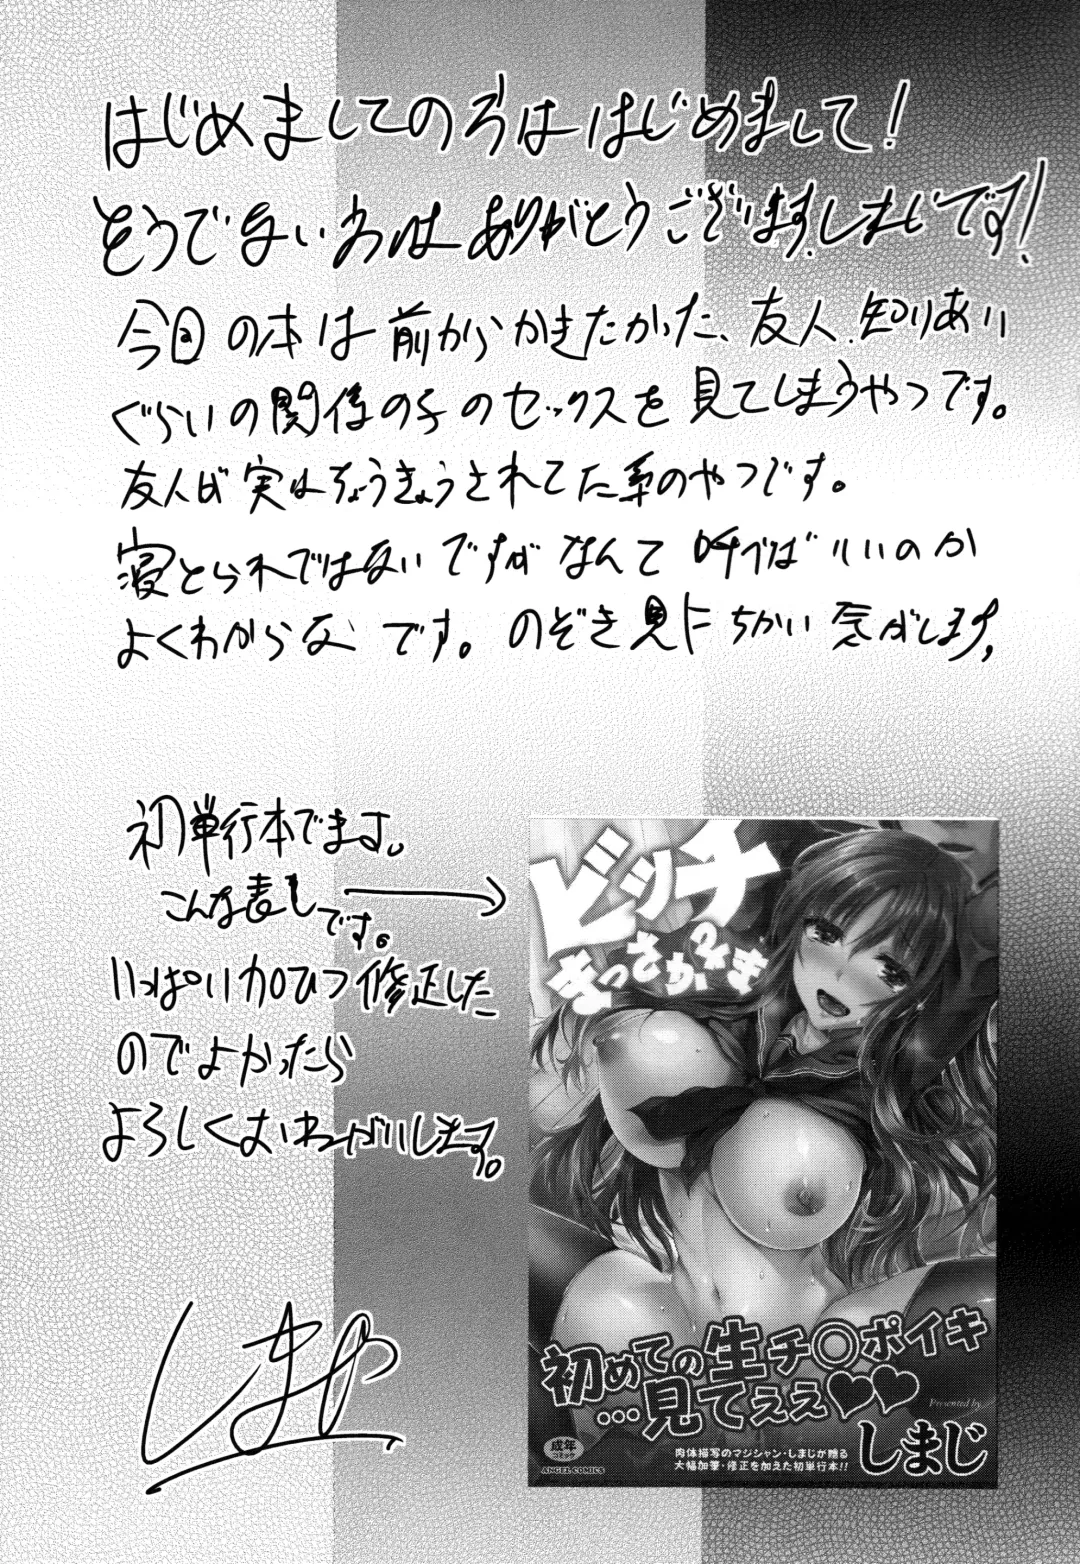 はじめましての方ははじめまして!
そうでない方はありがとうございます。しまじです!
今回の本は前からかきたかった、友人、知りあい
ぐらいの関係の子のセックスを見てしまうやつです。
友人が実はちょうきょうされてた系のやつです。
寝とられではないですがなんて呼べばいいのか
よくわからないです。のぞき見にちかい気がします。
初単行本でます。
こんな表し
です。
いっぱい加ひつ修正した
のでよかったら
よろしくおねがいします。
しまじ
ビッチ
まっさかさま
初めての生チ○ポイキ
…見てぇぇ♥♥
Presented by
しまじ
成年
コミック
ANGEL COMICS
肉体描写のマジシャン・しまじが贈る
大幅加筆・修正を加えた初単行本!!